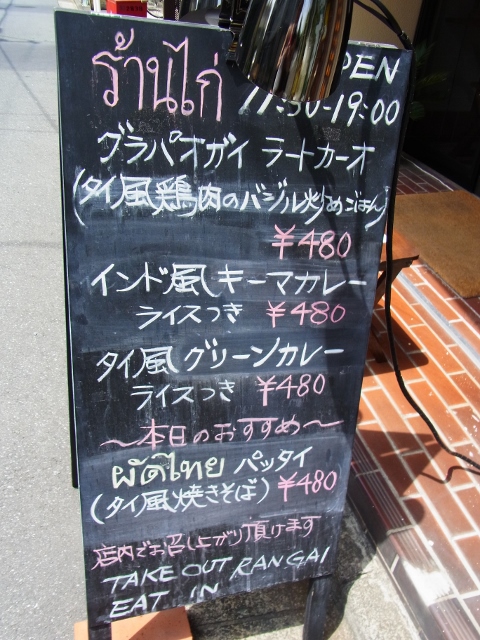 ร้านไก่
OPEN
11:30-19:00
グラパオガイ ラートカーオ
(タイ風鶏肉のバジル炒めごはん)
￥480
インド風キーマカレー
ライスつき ￥480
タイ風グリーンカレー
ライスつき ￥480
～本日のおすすめ～
ผัดไทย パッタイ
(タイ風焼きそば) ￥480
店内でお召し上がり頂けます
TAKE OUT RANGAI
EAT IN